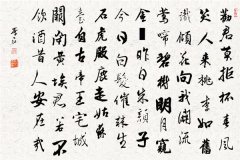 勸君莫拒杯春風
笑人来桃李如舊
識傾花向我開流
鶯啼碧樹明月窺
金 昨日朱顏子
今日白髮催棘生
石虎殿鹿走姑蘇
臺自古帝王宅城
闕閉黃埃君若不
飲酒昔人安在哉